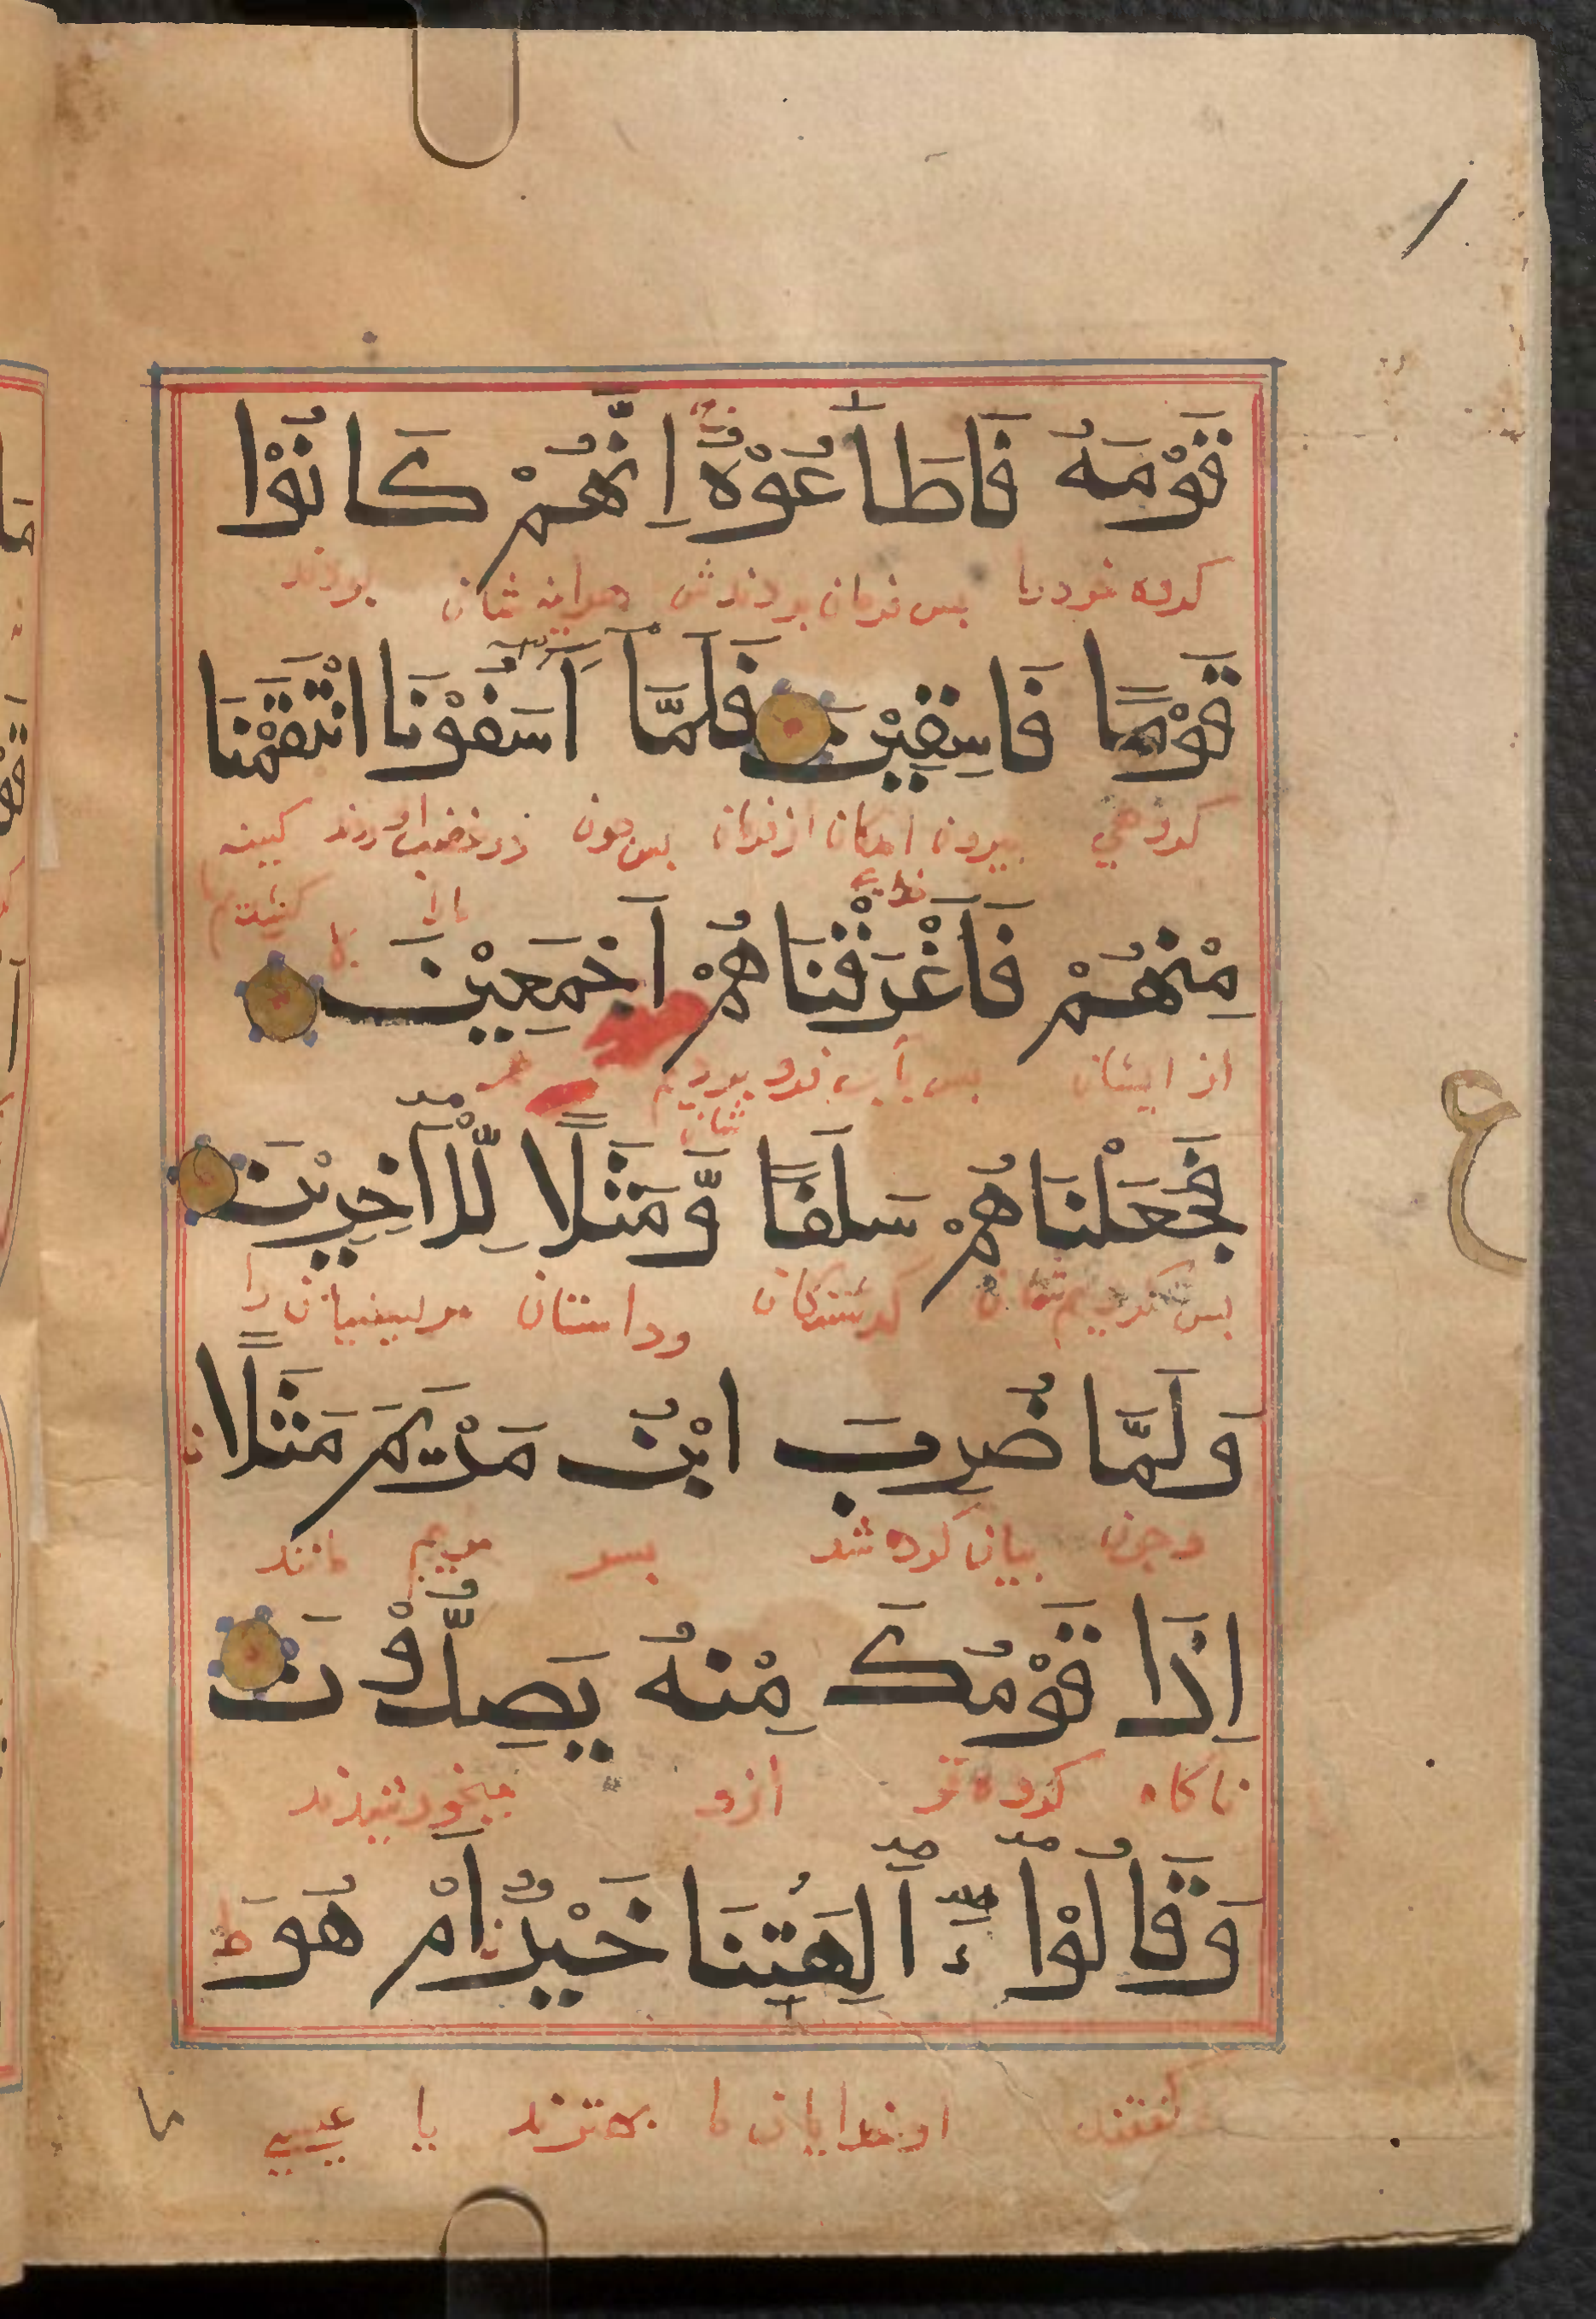 قَوْمَهُ فَاَطَاعُوْهُ اِنَّهُمْ كَانُوْا
كروه خود را بس فرمان بردندش هراينه شان بودند
قَوْمًا فَاسِقِيْنَ فَلَمَّا اٰسَفُوْنَا انْتَقَمْنَا
كروهي بيرون امدكان از فرمان بس چون در غضب اوردند كينه
مارا كشيديم
مِنْهُمْ فَاَغْرَقْنَاهُمْ اَجْمَعِيْنَ
از ايشان بس بآب فرو برديم شان همه
فَجَعَلْنَاهُمْ سَلَفًا وَّمَثَلًا لِّلْاٰخِرِيْنَ
بس كرديم شان كذشتكان وداستان مر بسينيان را
وَلَمَّا ضُرِبَ ابْنُ مَرْيَمَ مَثَلًا
وچون بيان كرده شد بسر مريم مانند
اِذَا قَوْمُكَ مِنْهُ يَصِدُّوْنَ
ناكاه كروه تو ازو
وَقَالُوْا ءَاٰلِهَتُنَا خَيْرٌ اَمْ هُوَ ط
كفتند او خدايان ما بهترند يا عيسي
ع